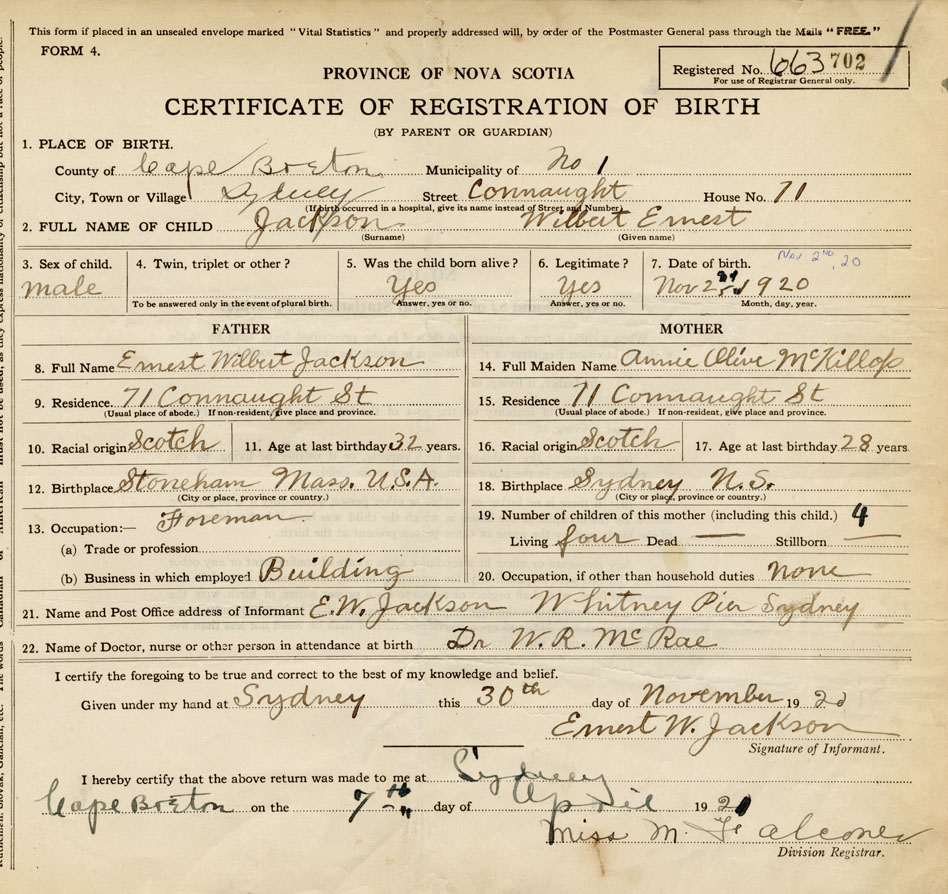 This form if placed in an unsealed envelope marked "Vital Statistics" and properly addressed will, by order of the Postmaster General pass through the Mails "FREE."
FORM 4.
Registered No. 663 702
For use of Registrar General only.
PROVINCE OF NOVA SCOTIA
CERTIFICATE OF REGISTRATION OF BIRTH
(BY PARENT OR GUARDIAN)
1. PLACE OF BIRTH.
County of Cape Breton Municipality of No 1
City, Town or Village Sydney Street Connaught House No. 71
(If birth occurred in a hospital, give its name instead of Street and Number)
2. FULL NAME OF CHILD Jackson Wilbert Ernest
(Surname) (Given name)
3. Sex of child. 4. Twin, triplet or other? 5. Was the child born alive? 6. Legitimate? 7. Date of birth. Nov 2nd, 20
male Yes Yes Nov 2nd 1920
To be answered only in the event of plural birth. Answer, yes or no. Answer, yes or no. Month, day, year.
FATHER MOTHER
8. Full Name Ernest Wilbert Jackson 14. Full Maiden Name Annie Olive McKillop
9. Residence. 71 Connaught St 15. Residence 71 Connaught St
(Usual place of abode.) If non-resident, give place and province. (Usual place of abode.) If non-resident, give place and province.
10. Racial origin Scotch 11. Age at last birthday 32 years. 16. Racial origin Scotch 17. Age at last birthday 28 years
12. Birthplace Stoneham Mass. U.S.A. 18. Birthplace Sydney N.S.
(City or place, province or country.) (City or place, province or country.)
13. Occupation:— Foreman 19. Number of children of this mother (including this child.) 4
(a) Trade or profession Living four Dead — Stillborn —
(b) Business in which employed Building 20. Occupation, if other than household duties none
21. Name and Post Office address of Informant E.W. Jackson Whitney Pier Sydney
22. Name of Doctor, nurse or other person in attendance at birth Dr W.R. McRae
I certify the foregoing to be true and correct to the best of my knowledge and belief.
Given under my hand at Sydney this 30th day of November 1920
Ernest W. Jackson
Signature of Informant.
I hereby certify that the above return was made to me at Sydney
Cape Breton on the 7th day of April 1921
Miss M. Falconer
Division Registrar.